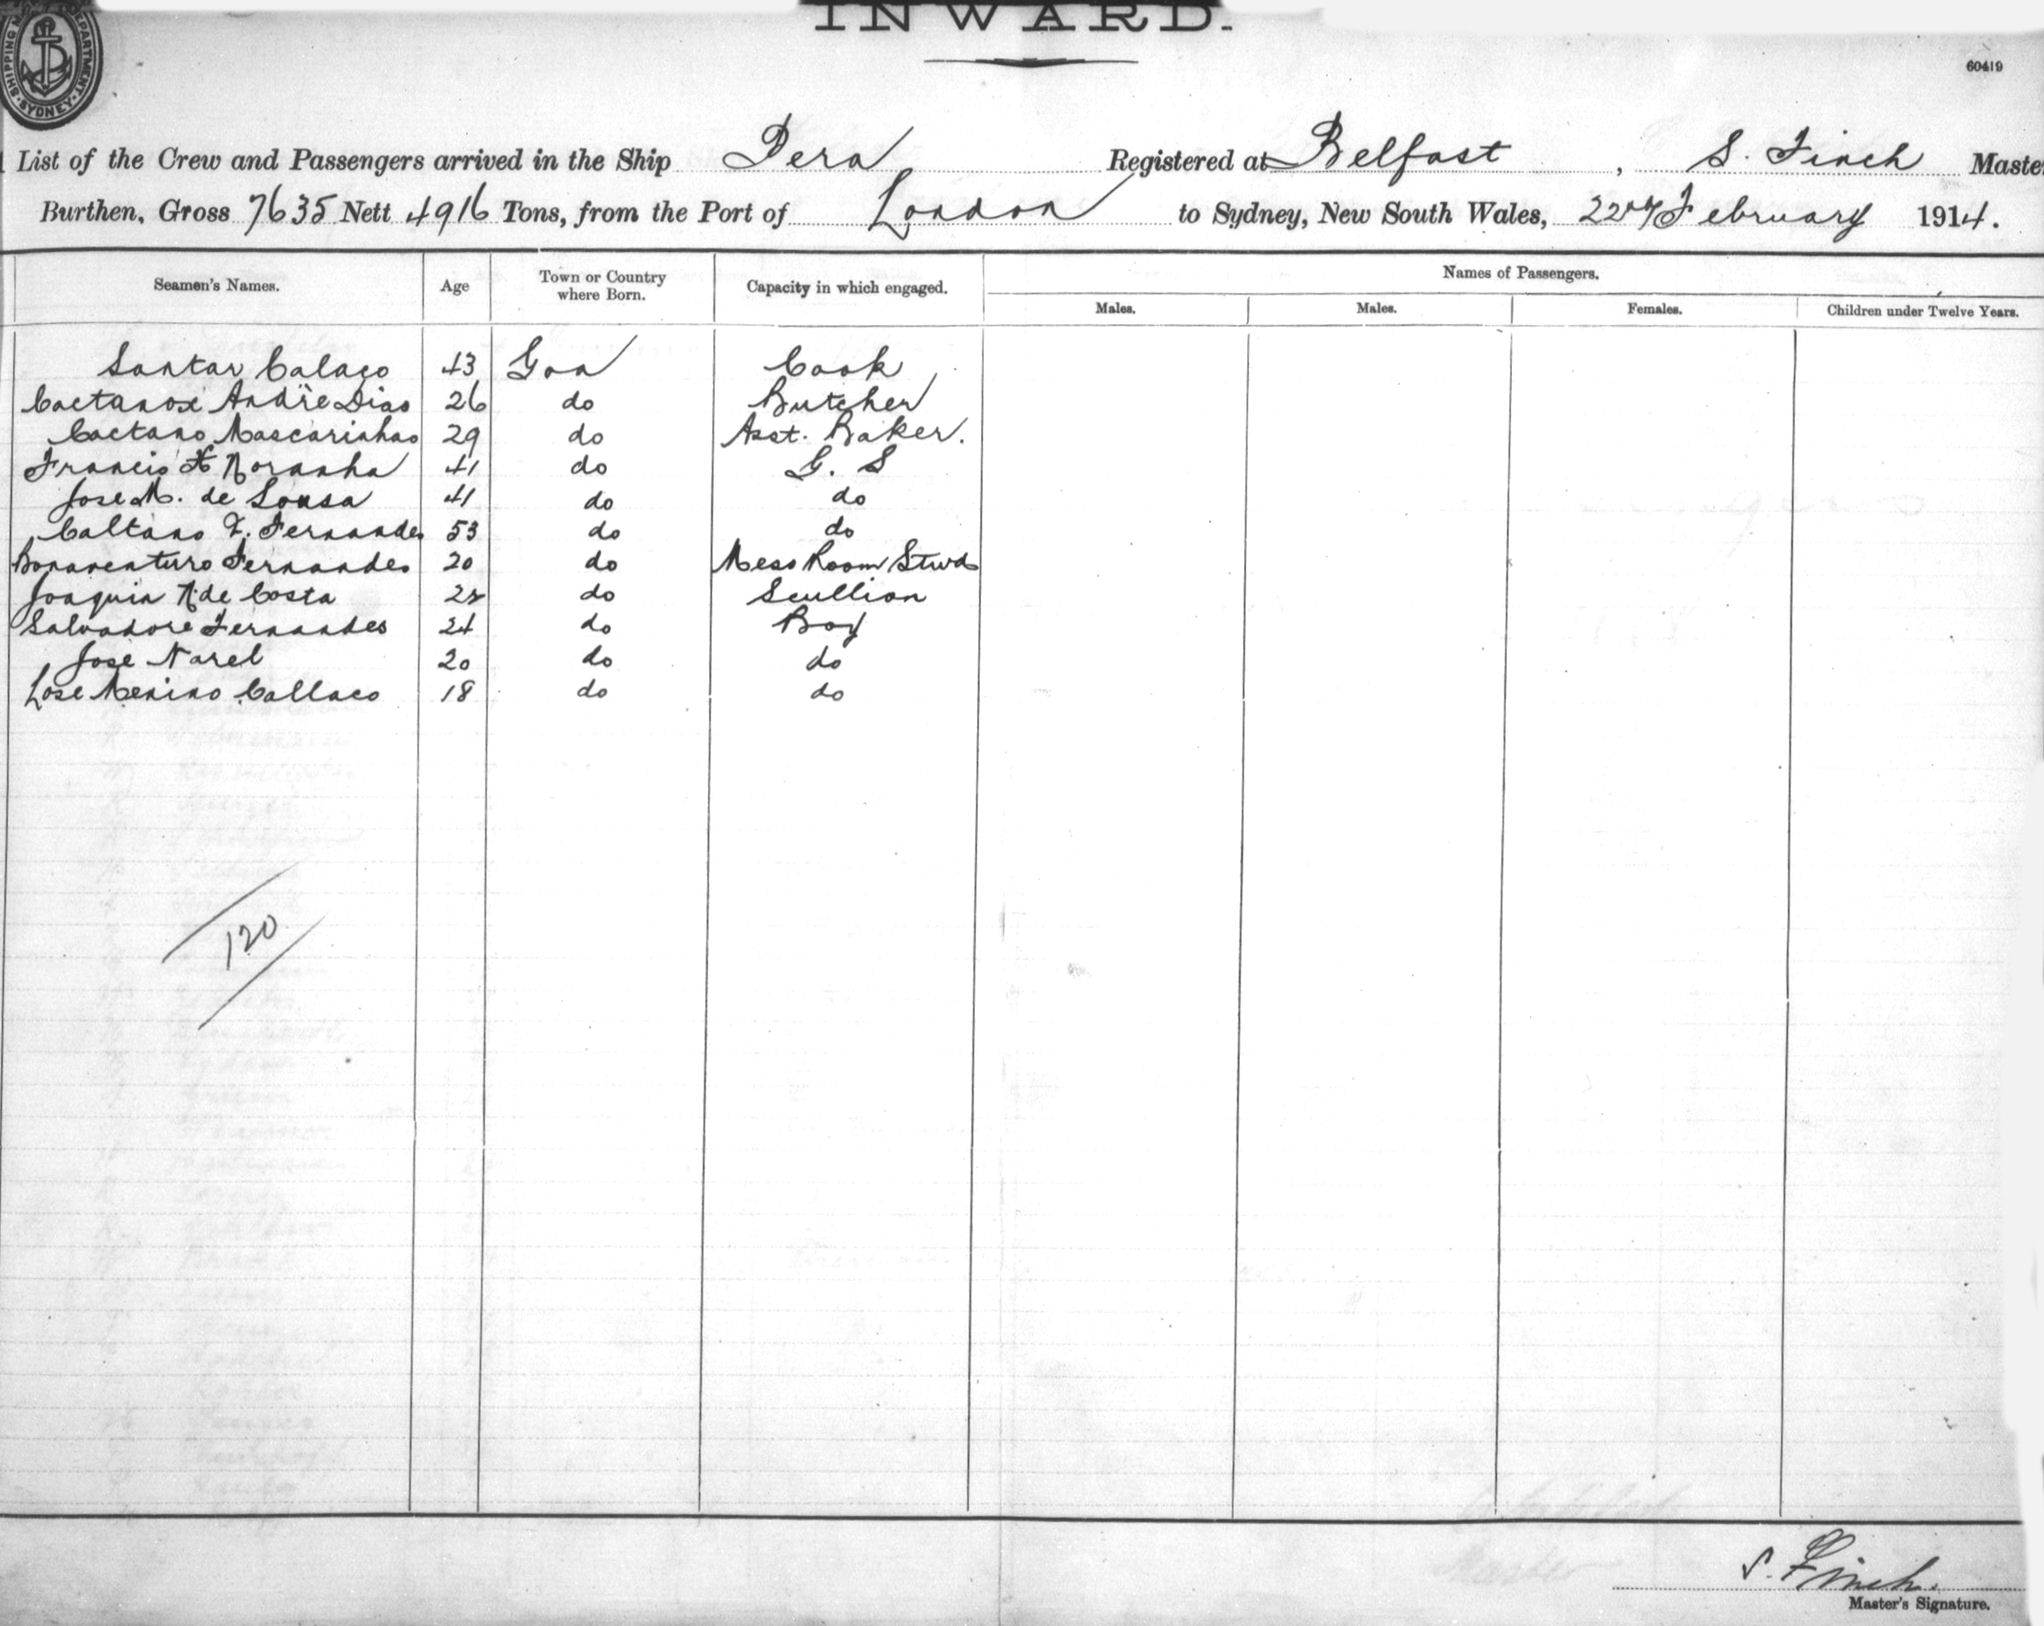 INWARD.
SHIPPING DEPARTMENT SYDNEY
60419
List of the Crew and Passengers arrived in the Ship Pera Registered at Belfast, S. Finch Master
Burthen, Gross 7635 Nett 4916 Tons, from the Port of London to Sydney, New South Wales, 22nd February 1914.
Seamen's Names. Age Town or Country where Born. Capacity in which engaged. Names of Passengers.
Males. Males. Females. Children under Twelve Years.
Santar Calaço 43 Goa Cook
Caetanoxe Andre Dias 26 do Butcher
Caetano Mascarinhas 29 do Asst. Baker.
Francis X Noranha 41 do G. S
Jose M. de Sousa 41 do do
Caltano F. Fernandes 53 do do
Bonaventuro Fernandes 20 do Mess Room Stwd
Joaquin R. de Costa 22 do Scullion
Salvadore Fernandes 24 do Boy
Jose Narel 20 do do
Lose Menino Callaco 18 do do
120
S. Finch.
Master's Signature.